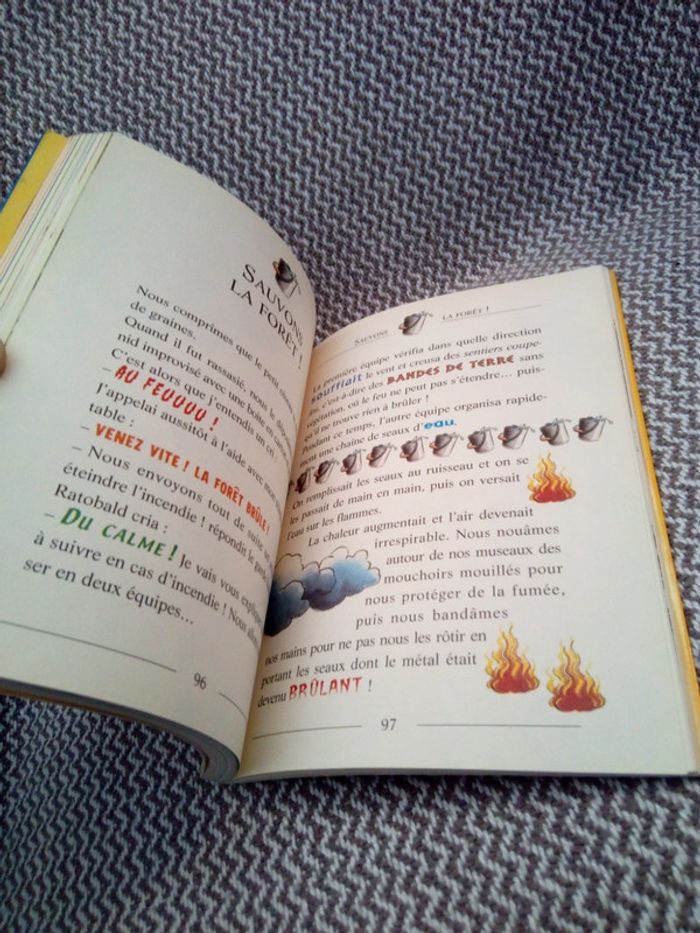 SAUVONS
LA FORÊT !
Nous comprîmes que le petit
de graines.
Quand il fut rassasié, nous le
nid improvisé avec une boîte en
C'est alors que j'entendis un cri :
– AU FEUUUU !
J'appelai aussitôt à l'aide avec mon
table :
– VENEZ VITE ! LA FORÊT BRÛLE !
– Nous envoyons tout de suite
éteindre l'incendie ! répondit le
Ratobald cria :
– DU CALME ! Je vais vous expliquer
à suivre en cas d'incendie ! Nous
ser en deux équipes...
96
SAUVONS LA FORÊT !
La première équipe vérifia dans quelle direction
soufflait le vent et creusa des sentiers coupe-
feu, c'est-à-dire des BANDES DE TERRE sans
végétation, où le feu ne peut pas s'étendre... puis-
qu'il ne trouve rien à brûler !
Pendant ce temps, l'autre équipe organisa rapide-
ment une chaîne de seaux d'eau.
On remplissait les seaux au ruisseau et on se
les passait de main en main, puis on versait
l'eau sur les flammes.
La chaleur augmentait et l'air devenait
irrespirable. Nous nouâmes
autour de nos museaux des
mouchoirs mouillés pour
nous protéger de la fumée,
puis nous bandâmes
nos mains pour ne pas nous les rôtir en
portant les seaux dont le métal était
devenu BRÛLANT !
97